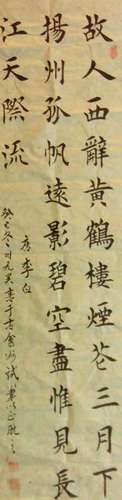 故人西辭黃鶴樓煙花三月下
揚州孤帆遠影碧空盡惟見長
江天際流
唐李白
癸巳冬